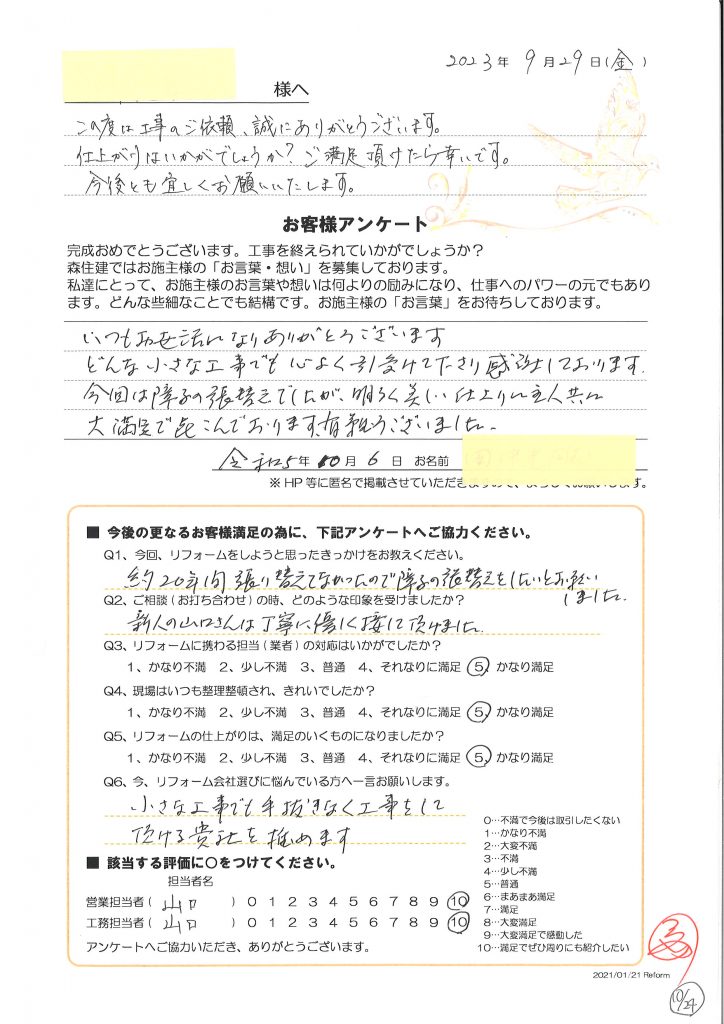 2023年 9月29日(金)
様へ
この度は工事のご依頼、誠にありがとうございます。
仕上がりはいかがでしょうか?ご満足頂けたら幸いです。
今後とも宜しくお願いいたします。
お客様アンケート
完成おめでとうございます。工事を終えられていかがでしょうか?
森住建ではお施主様の「お言葉・想い」を募集しております。
私達にとって、お施主様のお言葉や想いは何よりの励みになり、仕事へのパワーの元でもあり
ます。どんな些細なことでも結構です。お施主様の「お言葉」をお待ちしております。
いつもお世話になりありがとうございます
どんな小さな工事でも心よく引受けて下さり感謝しております.
今回は障子の張替えでしたが、明るく美しい仕上りに主人共に
大満足で喜こんでおります。有難うございました。
令和5年 10月 6日 お名前
※HP等に匿名で掲載させていただきますので、よろしくお願いします。
■ 今後の更なるお客様満足の為に、下記アンケートへご協力ください。
Q1、今回、リフォームをしようと思ったきっかけをお教えください。
約20年間張り替えてなかったので障子の張替えをしたいとお願い
しました.
Q2、ご相談(お打ち合わせ)の時、どのような印象を受けましたか?
新人の山口さんは丁寧に優しく接して頂けました.
Q3、リフォームに携わる担当(業者)の対応はいかがでしたか?
1、かなり不満 2、少し不満 3、普通 4、それなりに満足 5、かなり満足
Q4、現場はいつも整理整頓され、きれいでしたか?
1、かなり不満 2、少し不満 3、普通 4、それなりに満足 5、かなり満足
Q5、リフォームの仕上がりは、満足のいくものになりましたか?
1、かなり不満 2、少し不満 3、普通 4、それなりに満足 5、かなり満足
Q6、今、リフォーム会社選びに悩んでいる方へ一言お願いします。
小さな工事でも手抜きなく工事をして
頂ける貴社を推めます
■ 該当する評価に○をつけてください。
担当者名
営業担当者( 山口 )0 1 2 3 4 5 6 7 8 9 10
工務担当者( 山口 )0 1 2 3 4 5 6 7 8 9 10
アンケートへご協力いただき、ありがとうございます。
0…不満で今後は取引したくない
1…かなり不満
2…大変不満
3…不満
4…少し不満
5…普通
6…まあまあ満足
7…満足
8…大変満足
9…大変満足で感動した
10…満足でぜひ周りにも紹介したい
2021/01/21 Reform
10/24